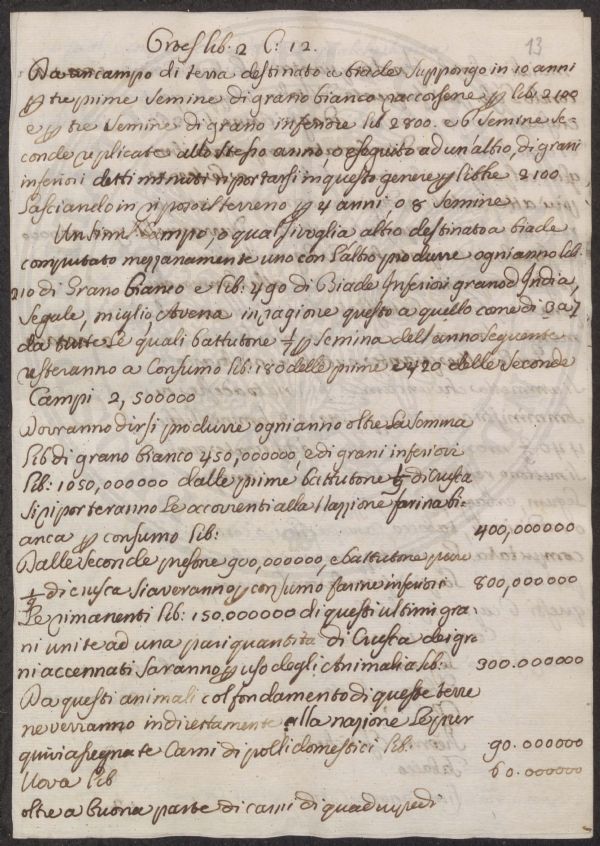 Groes lib. 2 C: 12.
13
Da un campo di terra destinato a biade suppongo in 10 anni
per tre prime semine di grano bianco raccorsene per lib. 2100
e per tre semine di grano inferiore lib 2800. e 6 semine se-
conde replicate allo stesso anno, o eseguito ad un altro, di grani
inferiori detti minuti riportarsi in questo genere per libbre 2100
Lasciando in riposo il terreno per 4 anni o 8 semine
Un simil campo, o qual sivoglia altro destinato a biade
computato mezzanamente uno con l'altro produrre ogni anno lib.
210 di Grano bianco e lib: 490 di Biade Inferiori grano d'India,
segale, miglio, Avena in ragione questo a quello come di 3 a 7
da tutte le quali battutone per semina dell'anno seguente
resteranno a Consumo lib: 180 delle prime e 420 delle seconde
Campi 2,500000
Dovranno dirsi produrre ogni anno oltre la somma
lib di grano bianco 450,000000, e di grani inferiori
lib: 1050,000000 dalle prime battutone 1/9 di Crusca
si riporteranno le accorrenti alla Nazione farina bi-
anca per consumo lib: 400,000000
Dalle seconde presone 900,000000, e battutone pure
1/9 di crusca si averanno per consumo farine inferiori 800,000000
Le rimanenti lib: 150.000000 di questi ultimi gra-
ni unite ad una pari quantità di Crusca dei gra-
ni accennati saranno per uso degli Animali a lib: 300.000000
Da questi animali col fondamento di queste terre
ne verranno indirettamente alla nazione le pur
quivi assegnate Carni di polli domestici lib. 90.000000
Uova lib 60.000000
oltre a buona parte di carni di quadrupedi